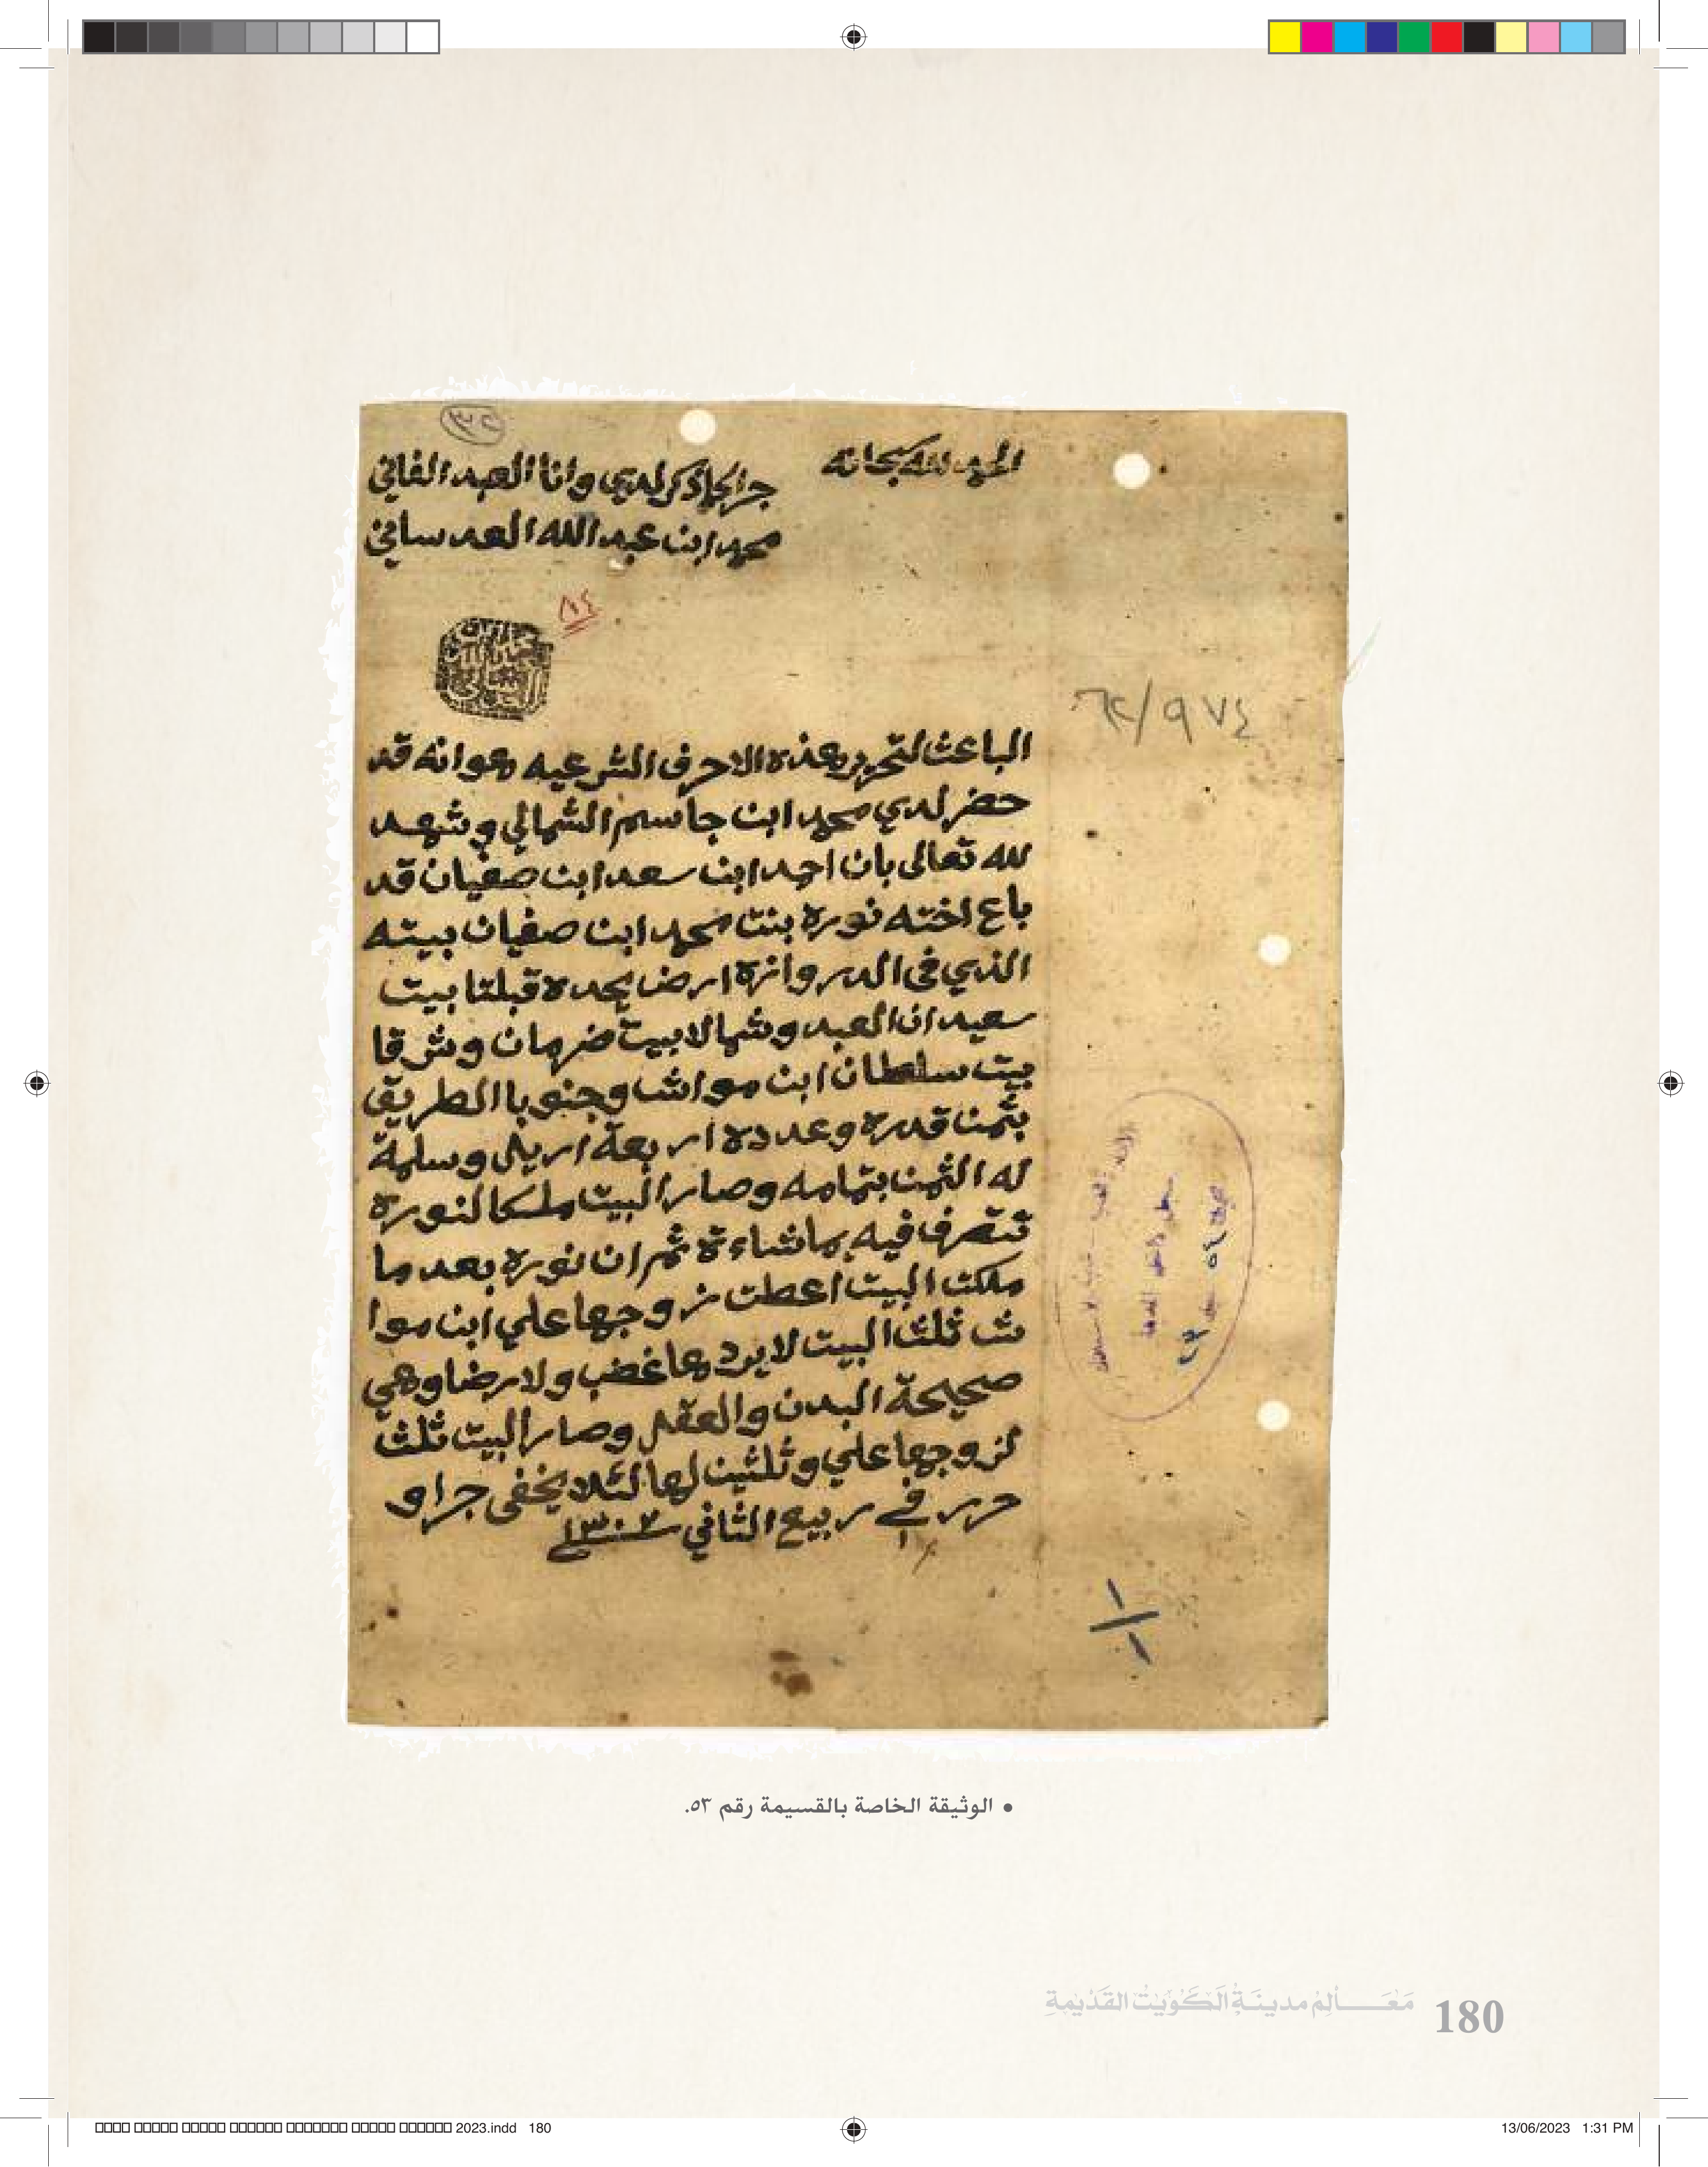 الحمد لله سبحانه
جرا ما ذكر لدي وانا العبد الفاني
محمد ابن عبد الله العدساني
٨٤
٩٧٤/٦٢
الباعث لتحرير هذه الاحرف الشرعيه هو انه قد
حضر لدي محمد ابن جاسم الشمالي وشهد
لله تعالى بان احمد ابن سعد ابن صفيان قد
باع اخته نورة بنت محمد ابن صفيان بيته
الذي في الدروازة ارض يحده قبلتا بيت
سعيدان العبد وشمالا بيت ضرمان وشرقا
بيت سلطان ابن مواش وجنوبا الطريق
بثمن قدره وعدده اربعة اريل وسلمة
له الثمن بتمامه وصار البيت ملكا لنورة
تتصرف فيه ما شاءة ثم ان نورة بعد ما
ملكت البيت اعطت زوجها علي ابن موا
ش ثلث البيت لا يردها غضب ولا رضا وهي
صحيحة البدن والعقل وصار البيت ثلث
لزوجها علي وثلثين لها لئلا يخفى جرا و
حرر في ربيع الثاني ١٣٠٧
• الوثيقة الخاصة بالقسيمة رقم ٥٣.
مَعَـــالِمُ مدينَةِ الكُوَيْتِ القَدْيمَةِ
180
2023.indd 180
13/06/2023 1:31 PM